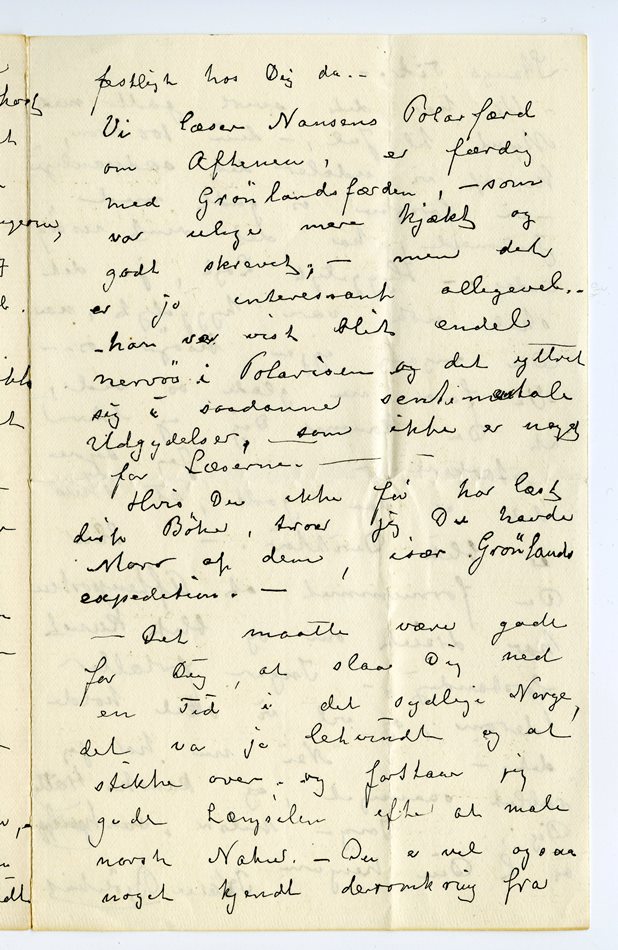 festligt hos Dig da. –
Vi læser Nansens Polarfærd
om Aftenen, er færdig
med Grönlandsfærden, – som
var ulige mere kjækt og
godt skrevet, – men det
er jo interessant allegevel. –
– han var vist blit endel
nervös i Polarisen og det yttret
sig i saadanne sentimentale
Udgydelser, som ikke er noget
for Læserne. –
Hvis Du ikke för har læst
disse Böker, tror jeg Du havde
Moro af dem, især Grönlands
expedition. –
– Det maatte være godt
for Dig, at slaa Dig ned
en Tid i det sydlige Norge,
det var jo lehvindt og at
stikke over. og forstaar jeg
godt Længselen efter at male
norsk Natur. – Du er vel ogsaa
noget kjendt deromkring fra